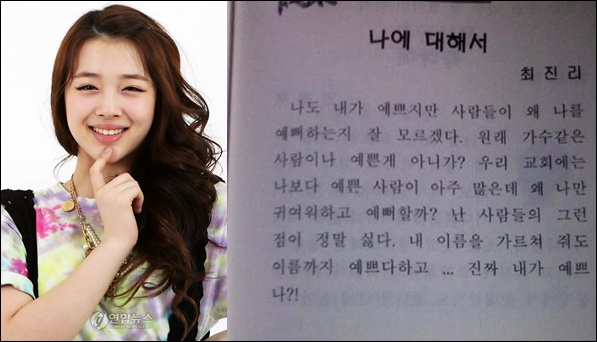 나에 대해서
최진리
나도 내가 예쁘지만 사람들이 왜 나를
예뻐하는지 잘 모르겠다. 원래 가수같은
사람이나 예쁜게 아니가? 우리 교회에는
나보다 예쁜 사람이 아주 많은데 왜 나만
귀여워하고 예뻐할까? 난 사람들의 그런
점이 정말 싫다. 내 이름을 가르쳐 줘도
이름까지 예쁘다하고 ... 진짜 내가 예쁘
나?!
연합뉴스